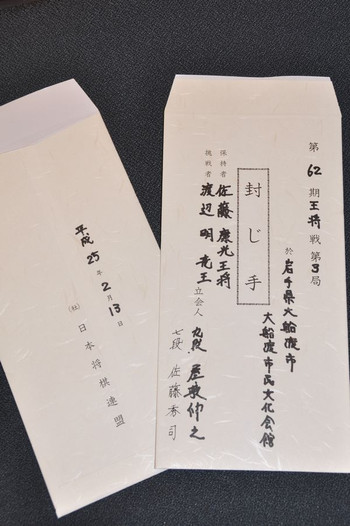 第62期王将戦第3局
於 岩手県大船渡市
大船渡市民文化会館
封じ手
保持者 佐藤康光王将
挑戦者 渡辺明竜王
立会人 九段 屋敷伸之
七段 佐藤秀司
平成25年2月13日
(社)日本将棋連盟